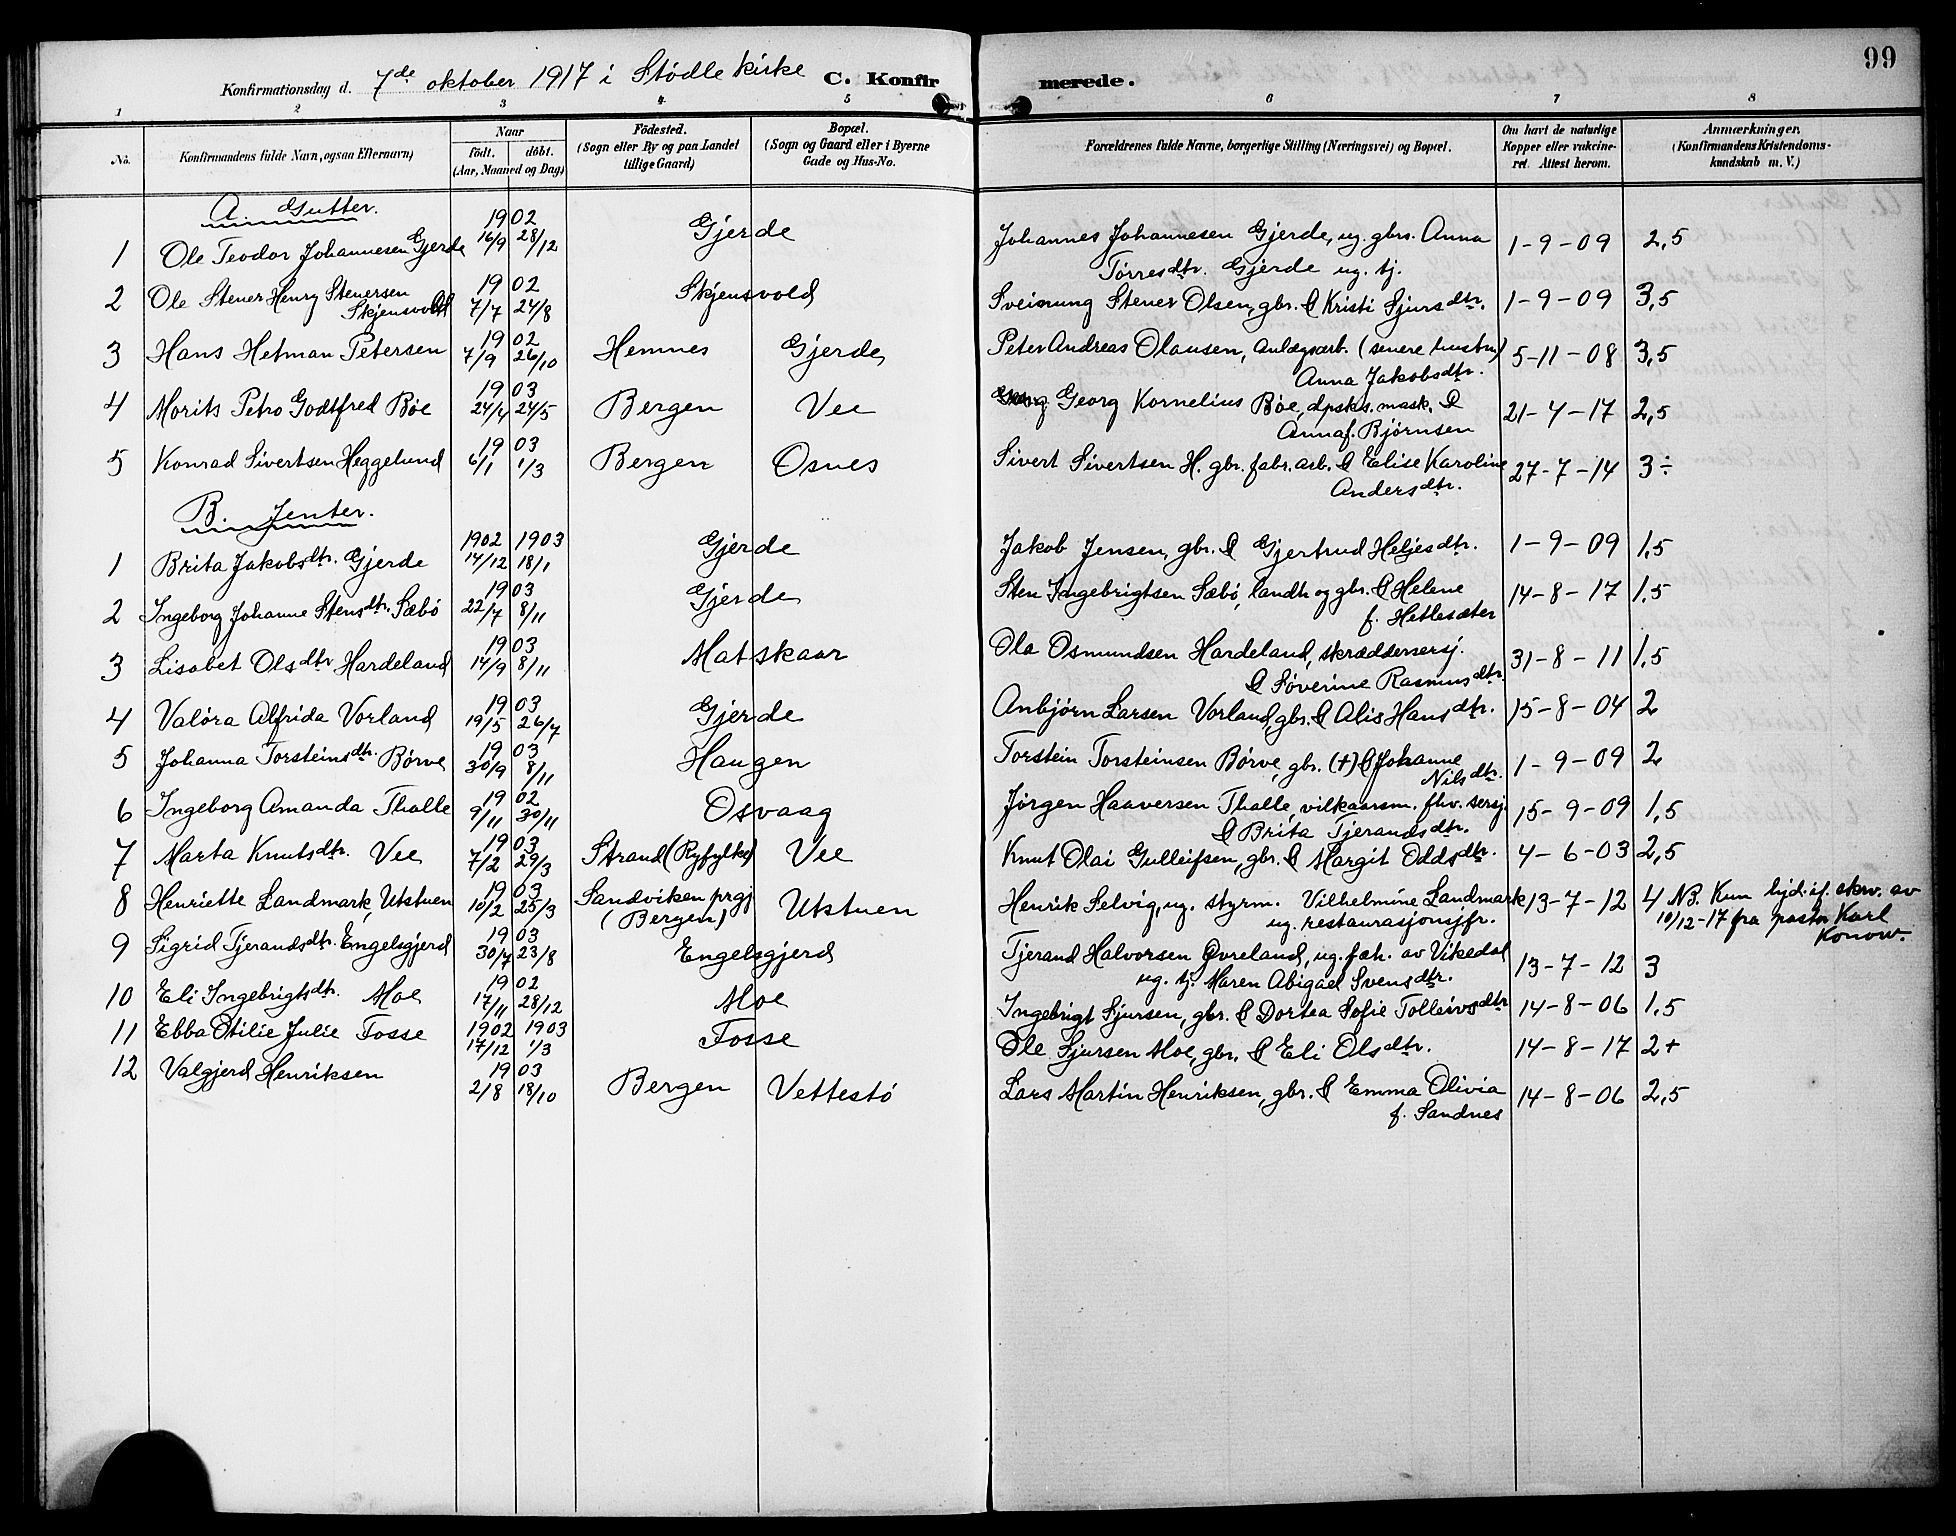 99
Konfirmationsdag d. 7de oktober 1917 i Stödle kirke C. Konfirmerede.
1 2 3 4 5 6 7 8
No. Konfirmandens fulde Navn, ogsaa Efternavn) Naar födt. döbt. (Aar, Maaned og Dag) Födested. (Sogn eller By og paa Landet tillige Gaard) Bopæl. (Sogn og Gaard eller i Byerne Gade og Hus-No. Forældrenes fulde Navne, borgerlige Stilling (Næringsvei) og Bopæl. Om havt de naturlige Kopper eller vakcineret. Attest herom. Anmærkninger. (Konfirmandens Kristendomskundskab m. V.)
A. Gutter.
1 Ole Teodor Johannesen Gjerde 1902 16/9 28/12 Gjerde Johannes Johannesen Gjerde, ug. gbrs. Anna Tørresdtr. Gjerde ug. tj. 1-9-09 2,5
2 Ole Stener Henry Stenersen Skjensvold 1902 7/7 24/8 Skjensvold Sveinung Stener Olsen, gbr. & Kristi Sjursdtr. 1-9-09 3,5
3 Hans Hetman Petersen 1902 7/9 26/10 Hemnes Gjerde Peter Andreas Olausen, anlægsarb. (senere hustru) Anna Jakobsdtr. 5-11-08 3,5
4 Morits Petro Godtfred Bøe 1903 24/4 24/5 Bergen Vee Georg Kornelius Bøe, dpsks. mask. & Anna f. Bjørnsen 21-4-17 2,5
5 Konrad Sivertsen Heggelund 1903 6/1 1/3 Bergen Osnes Sivert Sivertsen H. gbr. fabr. arb. & Elise Karoline Andersdtr. 27-7-14 3÷
B. Jenter.
1 Brita Jakobsdtr. Gjerde 1902 14/12 1903 18/1 Gjerde Jakob Jensen, gbr. & Gjertrud Heljesdtr. 1-9-09 1,5
2 Ingeborg Johanne Stensdtr. Sæbö 1903 22/7 8/11 Gjerde Sten Ingebrigtsen Sæbö, landh. og gbr. & Helene f. Hetlesæter 14-8-17 1,5
3 Lisabet Olsdtr Hardeland 1903 14/9 8/11 Matskaar Ola Osmundsen Hardeland, skræddersersj. & Søverine Rasmusdtr. 31-8-11 1,5
4 Valøra Alfrida Vorland 1903 19/5 26/7 Gjerde Anbjørn Larsen Vorland, gbr. & Alis Hansdtr. 15-8-04 2
5 Johanna Torsteinsdtr. Børve 1903 30/9 8/11 Haugen Torstein Torsteinsen Børve, gbr. (+) & Johanne Nilsdtr. 1-9-09 2
6 Ingeborg Amanda Thalle 1902 9/11 30/11 Osvaag Jørgen Haaversen Thalle, vilkaarsm. fhv. sersj. & Brita Tjerandsdtr. 15-9-09 1,5
7 Marta Knutsdtr. Vee 1903 7/2 29/3 Strand (Ryfylke) Vee Knut Olai Gulleifsen, gbr. & Margit Oddsdtr. 4-6-03 2,5
8 Henriette Landmark, Utstuen 1903 10/2 25/3 Sandviken prgj (Bergen) Utstuen Henrik Selvig, ug. styrm. Vilhelmine Landmark ug. restaurasjonsjfr. 13-7-12 4 NB. Kun lyd. if. skr. av 10/12-17 fra pastor Karl Konow.
9 Sigrid Tjerandsdtr. Engelsgjerd 1903 30/7 23/8 Engelsgjerd Tjerand Halvorsen Øvreland, ug. fæh. av Vikedal ug. tj. Maren Abigael Svensdtr. 13-7-12 3
10 Eli Ingebrigtsdtr. Moe 1902 17/11 28/12 Moe Ingebrigt Sjursen, gbr. & Dortea Sofie Tolleivsdtr 14-8-06 1,5
11 Ebba Otilie Julie Fosse 1902 17/12 1903 1/3 Fosse Ole Sjursen Moe, gbr. & Eli Olsdtr. 14-8-17 2+
12 Valgjerd Henriksen 1903 2/8 18/10 Bergen Vettestö Lars Martin Henriksen, gbr. & Emma Olivia f. Sandnes 14-8-06 2,5